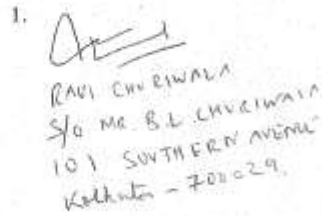 1.
RAVI CHURIWALA
S/o MR. B.L. CHURIWALA
101 SOUTHERN AVENUE
Kolkata - 700029.